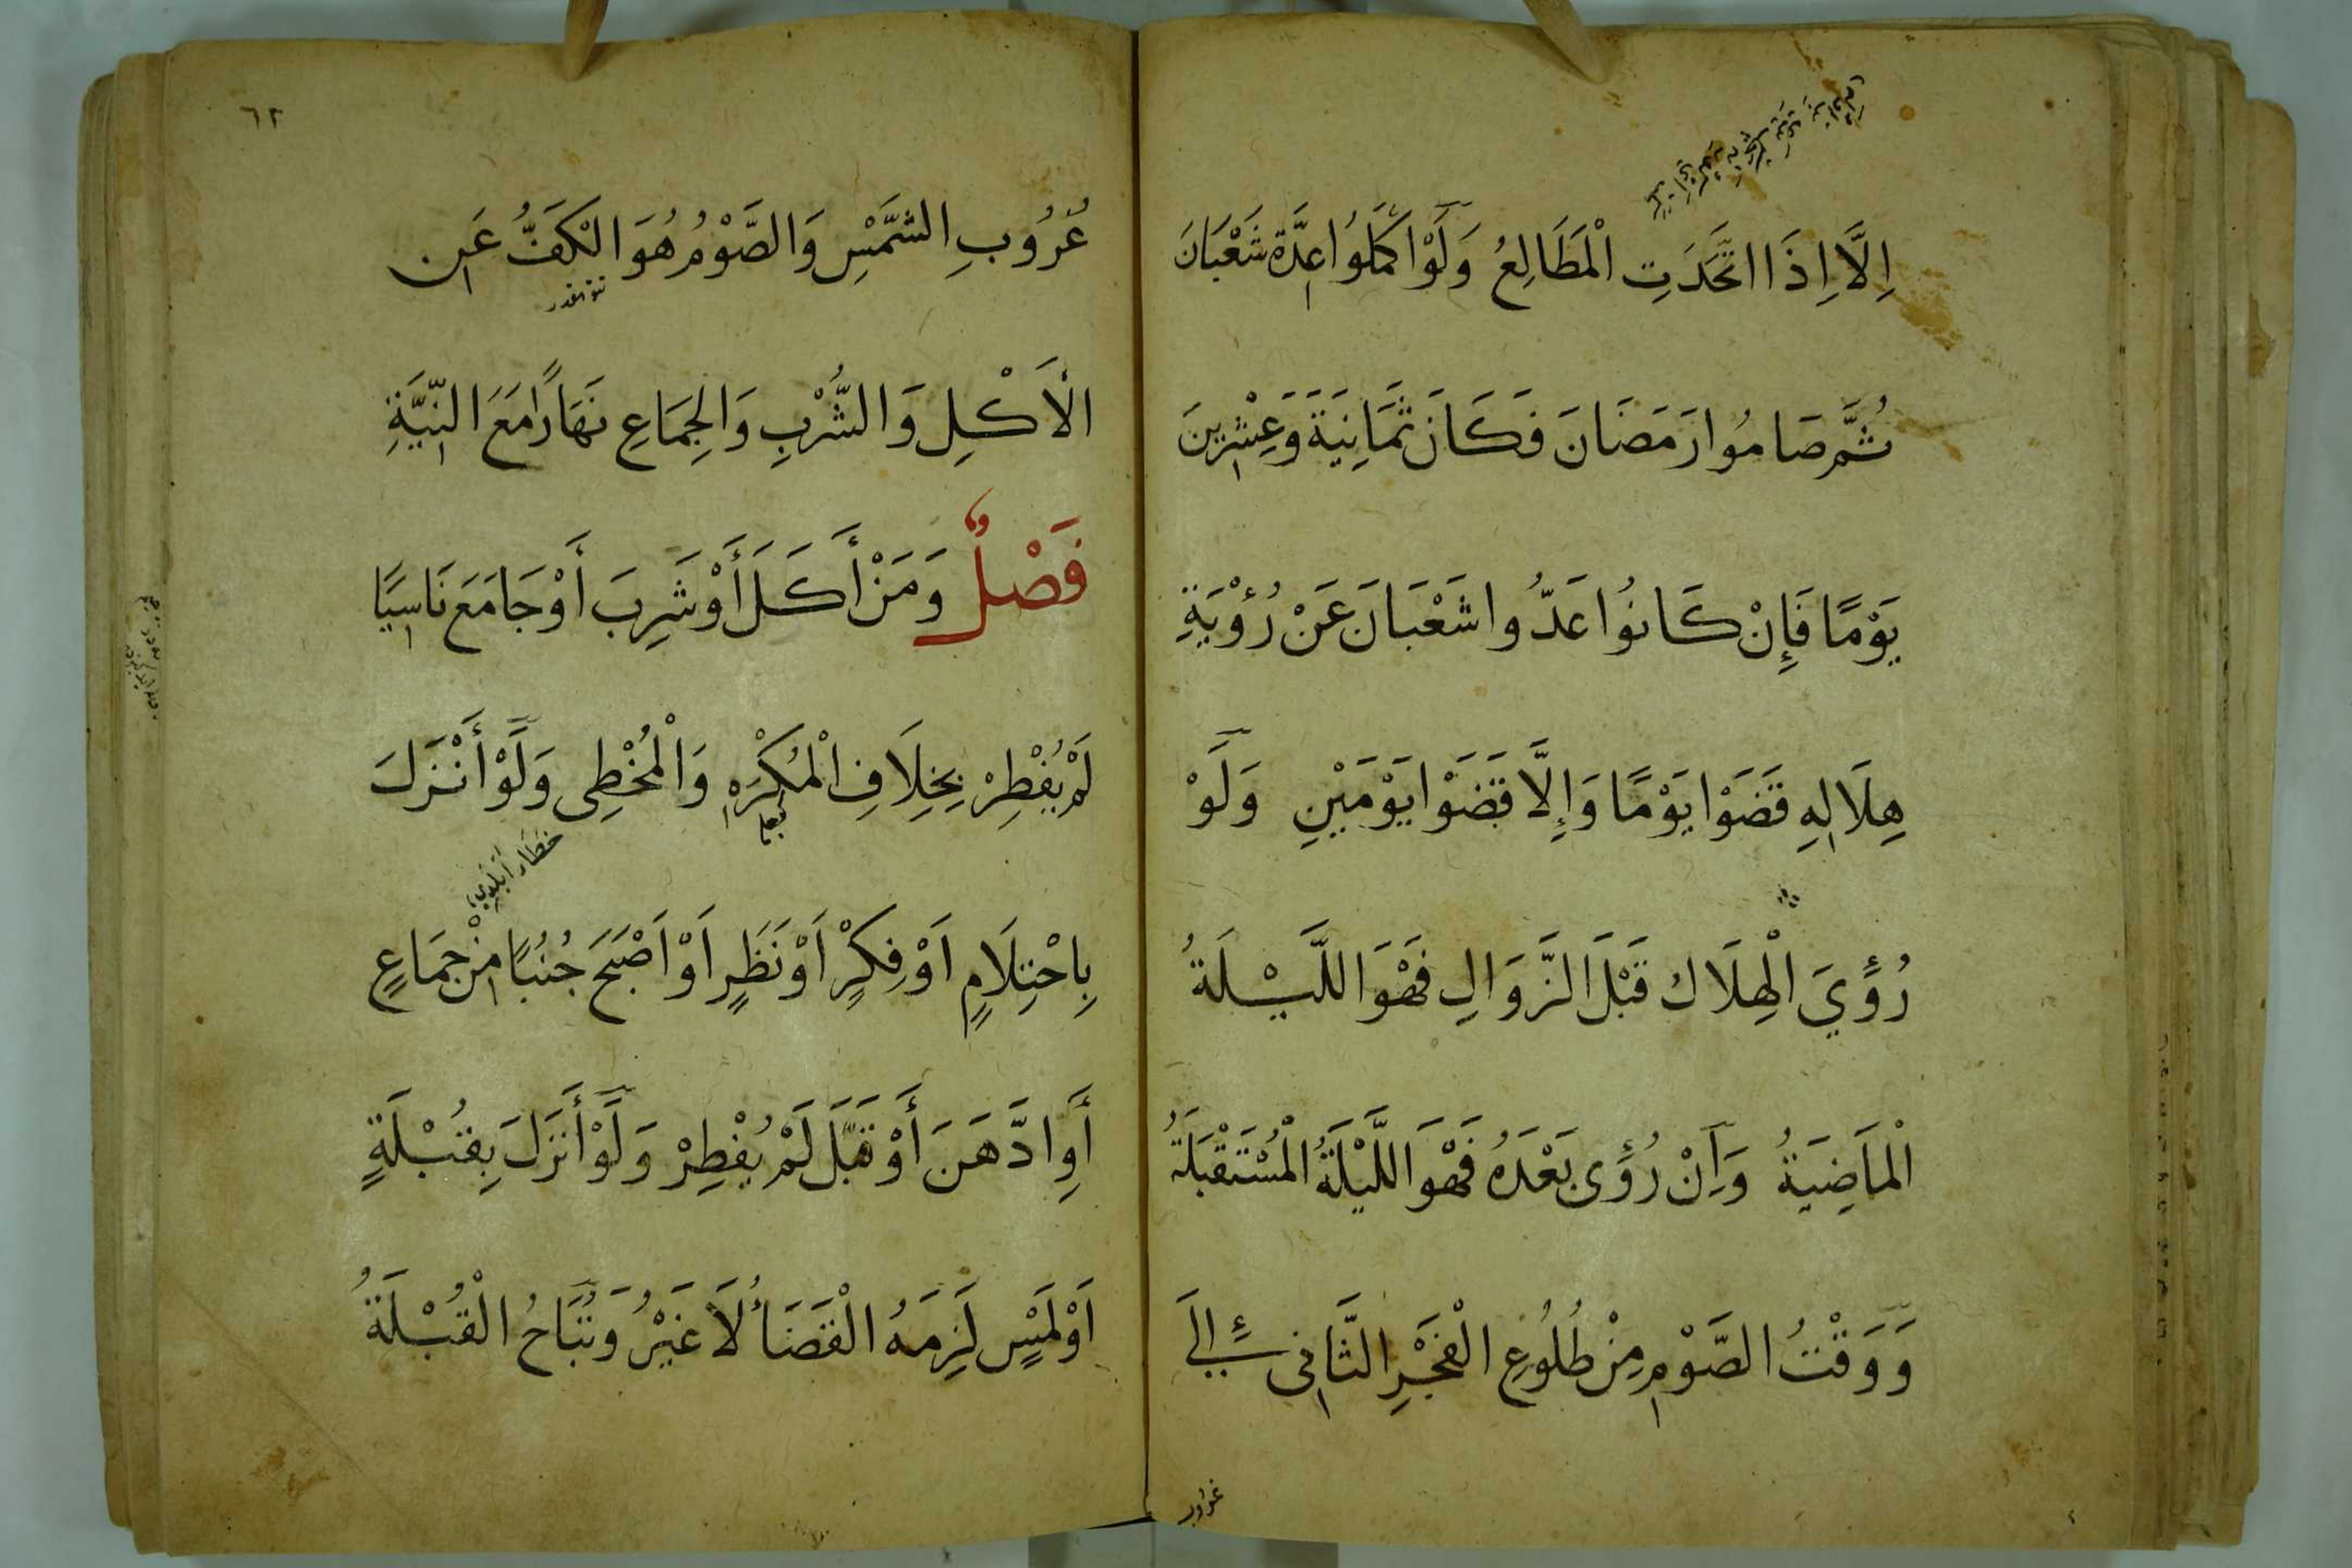 اِلَّا اِذَا اتَّحَدَتِ الْمَطَالِعُ وَلَوْ اَكْمَلُوا عِدَّةَ شَعْبَانَ
ثُمَّ صَامُوا رَمَضَانَ فَكَانَ ثَمَانِيَةَ وَعِشْرِينَ
يَوْمًا فَإِنْ كَانُوا عَدُّوا شَعْبَانَ عَنْ رُؤْيَةِ
هِلَالِهِ قَضَوْا يَوْمًا وَإِلَّا قَضَوْا يَوْمَيْنِ وَلَوْ
رُؤِيَ الْهِلَال قَبْلَ الزَّوَالِ فَهْوَ اللَّيْلَةُ
الْمَاضِيَةُ وَاِنْ رُؤِى بَعْدَهُ فَهْوَ اللَّيْلَةُ الْمُسْتَقْبَلَةُ
وَوَقْتُ الصَّوْمِ مِنْ طُلُوعِ الْفَجْرِ الثَّانِى إِلَى
غروب
٦٢
غُرُوبِ الشَّمْسِ وَالصَّوْمُ هُوَ الْكَفُّ عَنِ
الْاَكْلِ وَالشُّرْبِ وَالْجِمَاعِ نَهَارًا مَعَ النِّيَّةِ
فَصْلٌ وَمَنْ أَكَلَ أَوْ شَرِبَ أَوْ جَامَعَ نَاسِيًا
لَمْ يُفْطِرْ بِخِلَافِ الْمُكْرَهِ وَالْمُخْطِى وَلَوْ أَنْزَلَ
بِاحْتِلَامٍ اَوْ فِكْرٍ اَوْ نَظَرٍ اَوْ اَصْبَحَ جُنُبًا مِنْ جِمَاعٍ
أَوِ ادَّهَنَ أَوْ قَبَّلَ لَمْ يُفْطِرْ وَلَوْ أَنْزَلَ بِقُبْلَةٍ
اَوْ لَمْسٍ لَزِمَهُ الْقَضَاءُ لَا غَيْرُ وَتُبَاحُ الْقُبْلَةُ